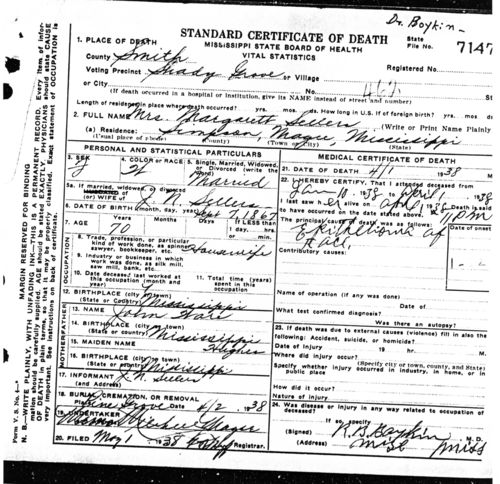 Dr. Boykin
STANDARD CERTIFICATE OF DEATH
MISSISSIPPI STATE BOARD OF HEALTH
VITAL STATISTICS
State File No. 7147
1. PLACE OF DEATH
County Smith
Registered No.
Voting Precinct Shady Grove or Village
or City
(If death occurred in a hospital or institution, give its NAME instead of street and number)
Length of residence in place where death occurred? yrs. mos. ds. How long in U.S. if of foreign birth? yrs. mos. ds.
2. FULL NAME Mrs. Margarett Sellers (Write or Print Name Plainly)
(a) Residence: Simpson, Magee, Mississippi
(Usual place of abode) (County) (Town or City) (State)
PERSONAL AND STATISTICAL PARTICULARS
3. SEX
4. COLOR OR RACE W
5. Single, Married, Widowed, or Divorced (write the word) Married
5a. If married, widowed, or divorced
HUSBAND of
(or) WIFE of J. N. Sellers
6. DATE OF BIRTH (month, day, year) Sept 7, 1867
7. AGE Years 70 Months Days If less than 1 day, hrs. or min.
OCCUPATION
8. Trade, profession, or particular kind of work done, as spinner, sawyer, bookkeeper, etc. Housewife
9. Industry or business in which work was done, as silk mill, saw mill, bank, etc.
10. Date deceased last worked at this occupation (month and year)
11. Total time (years) spent in this occupation
12. BIRTHPLACE (city or town)
(State or Country) Mississippi
13. NAME John Ware
14. BIRTHPLACE (city or town)
(State or country) Mississippi
15. MAIDEN NAME Hughes
16. BIRTHPLACE (city or town)
(State or country) Mississippi
17. INFORMANT J. N. Sellers
(and Address)
18. BURIAL, CREMATION, OR REMOVAL
Place Pine Grove Date 4/2, 1938
19. UNDERTAKER Magee
(Address)
20. FILED May 1 1938 Registrar.
MEDICAL CERTIFICATE OF DEATH
21. DATE OF DEATH 4/1 1938
22. I HEREBY CERTIFY, That I attended deceased from Jan 10, 1938 to April 1 1938
I last saw her alive on April 1938
to have occurred on the date stated above, at PM
The principal cause of death was as follows: Date of onset
Epithelioma of
face
Contributory causes:
Name of operation (if any was done) Date of
What test confirmed diagnosis? Was there an autopsy?
23. If death was due to external causes (violence) fill in also the following: Accident, suicide, or homicide?
Date of injury 19 hr. M.
Where did injury occur?
(Specify city or town, county, and State)
Specify whether injury occurred in industry, in home, or in public place
How did it occur?
Nature of injury
24. Was disease or injury in any way related to occupation of deceased?
If so, specify
(Signed) R. B. Boykin M. D.
(Address) Mize Miss
MARGIN RESERVED FOR BINDING
Form V. S. No. 4